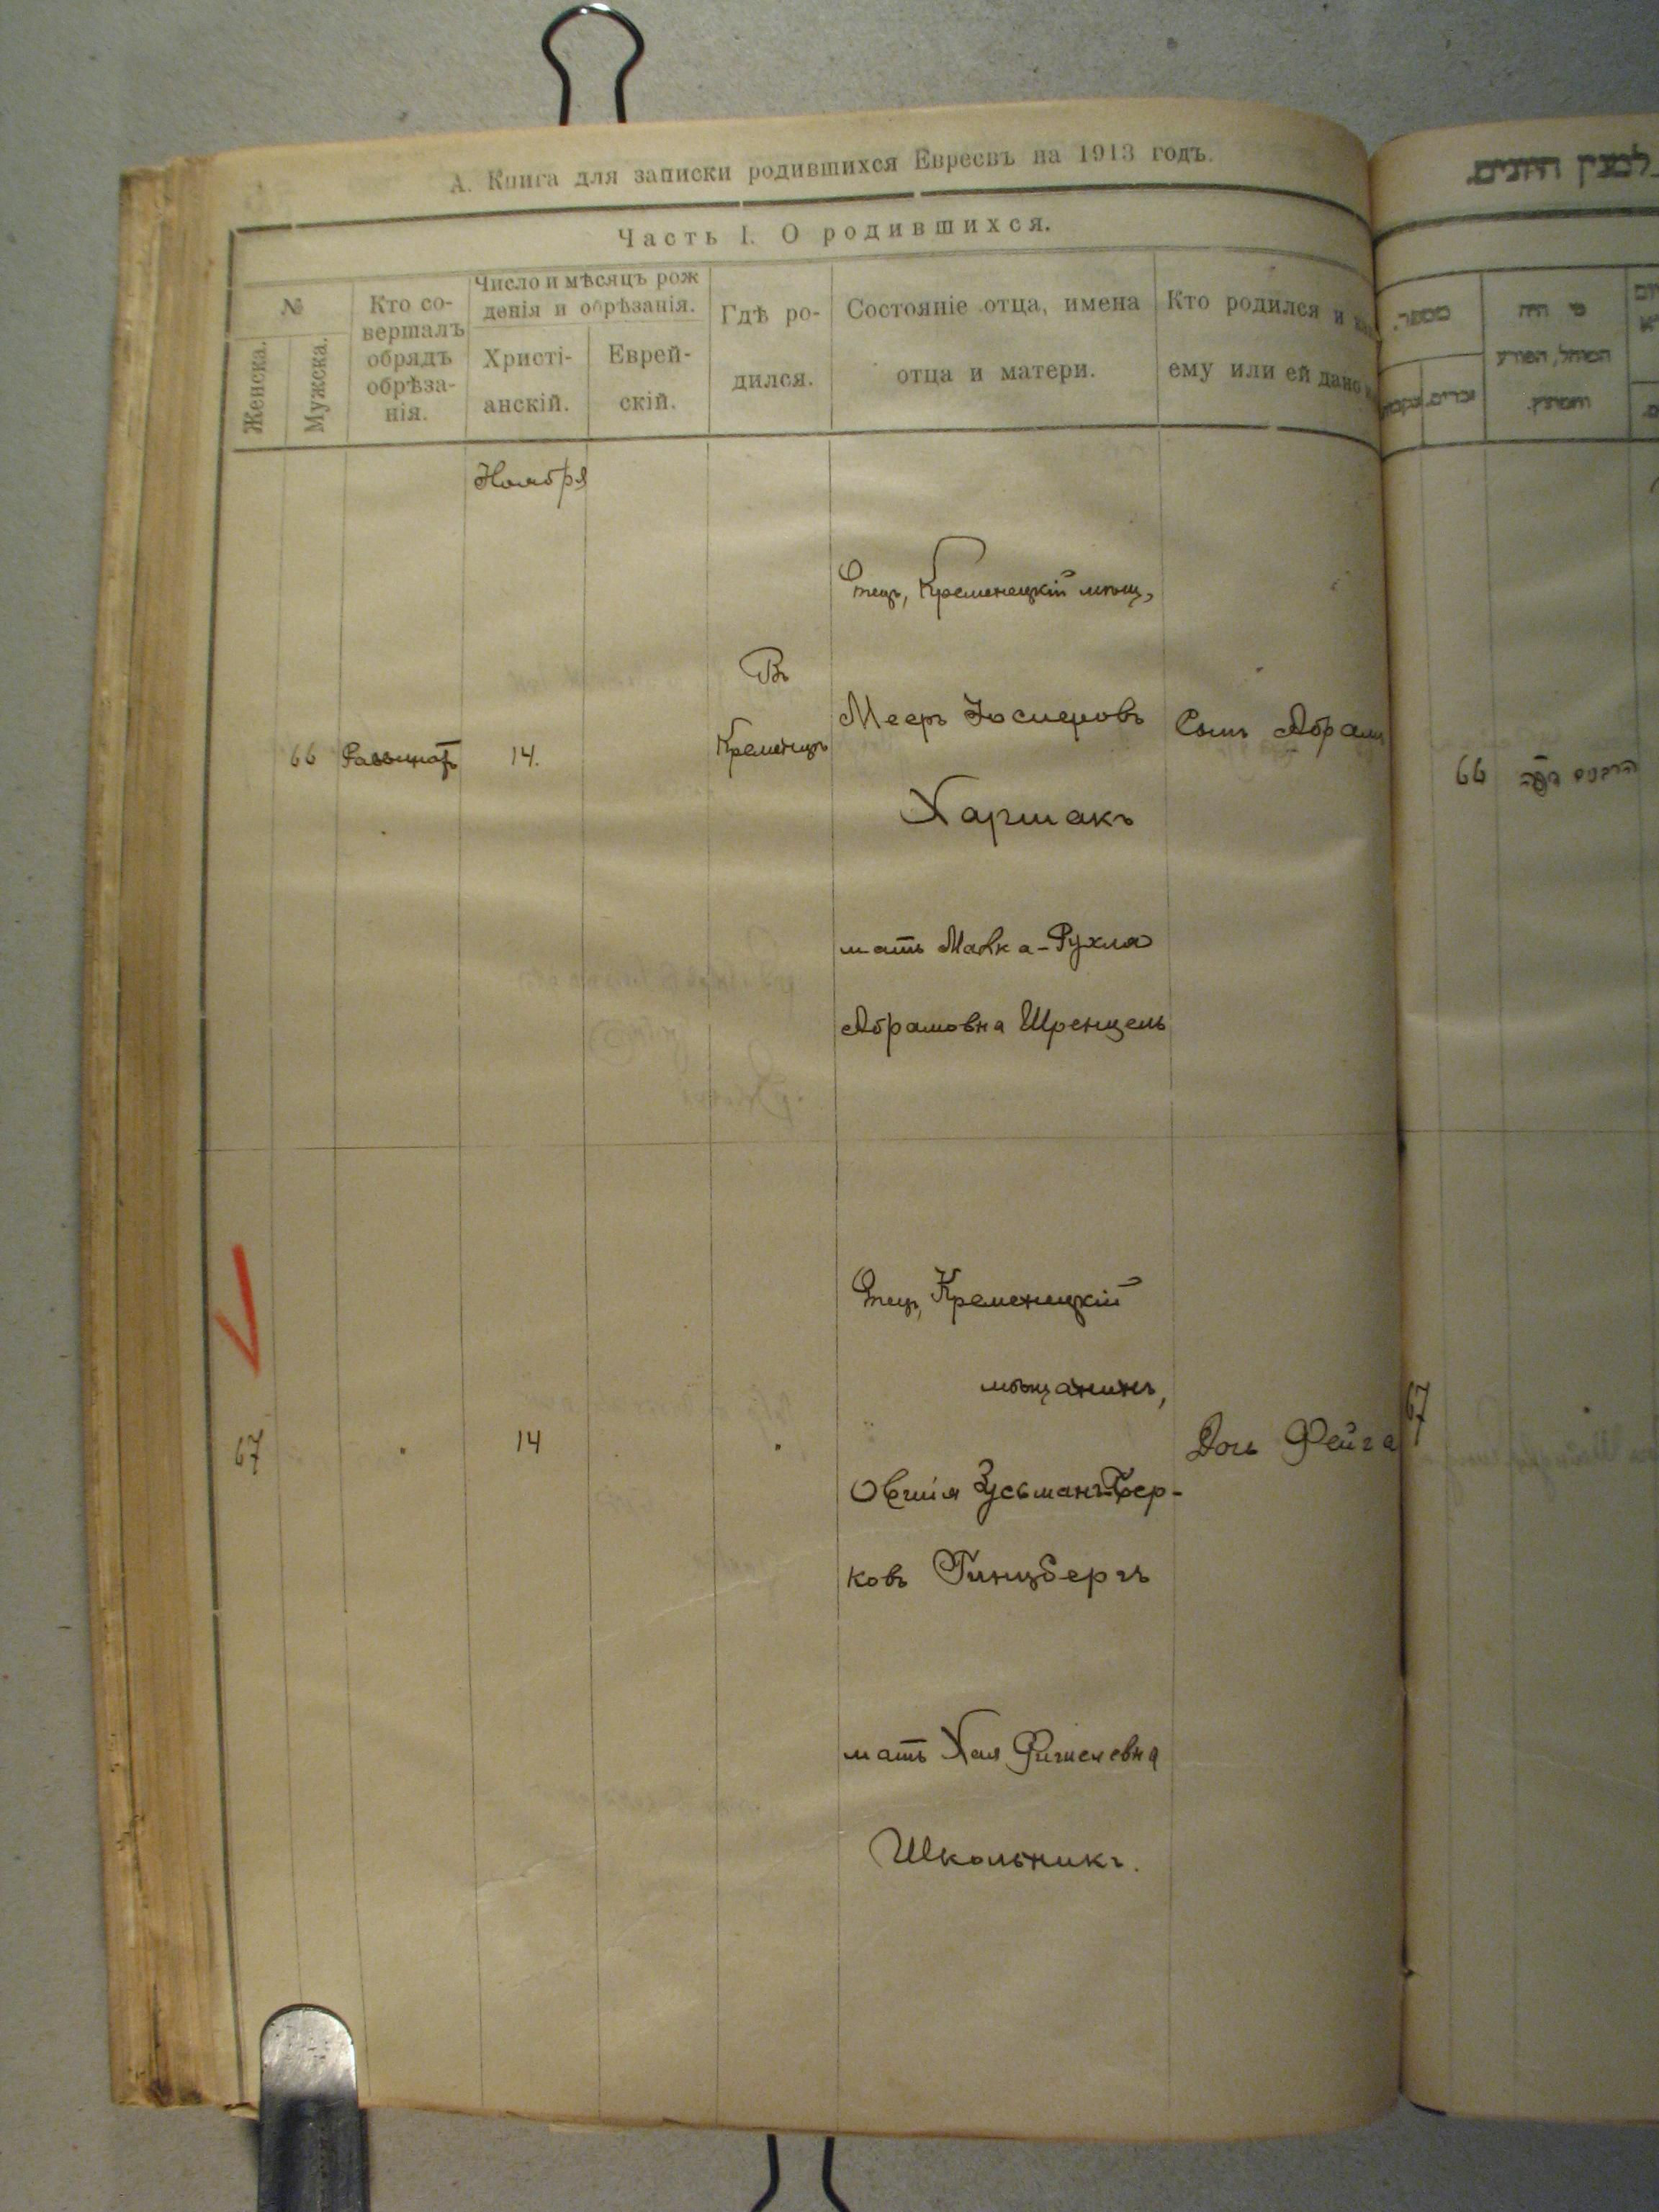 А. Книга для записки родившихся Евреевъ на 1913 годъ.
Часть I. О родившихся.
№
Женска.
Мужска.
Кто со-
вершалъ
обрядъ
обрѣза-
нія.
Число и мѣсяцъ рож
денія и обрѣзанія.
Христі-
анскій.
Еврей-
скій.
Гдѣ ро-
дился.
Состояніе отца, имена
отца и матери.
Кто родился и
ему или ей дано
Ноября
66
14.
Въ
Кременцѣ
Отецъ, Кременецкій мѣщ,
Мееръ Іосиповъ
Харшакъ
мать Малка-Рухля
Абрамовна Шренцель
Сынъ Абрамъ
66
67
14
Отецъ, Кременецкій
мѣщанинъ,
Овшія Зусьманъ-Бер-
ковъ Гинцбергъ
мать Хая Фишелевна
Школьникъ.
Дочь Фейга
67